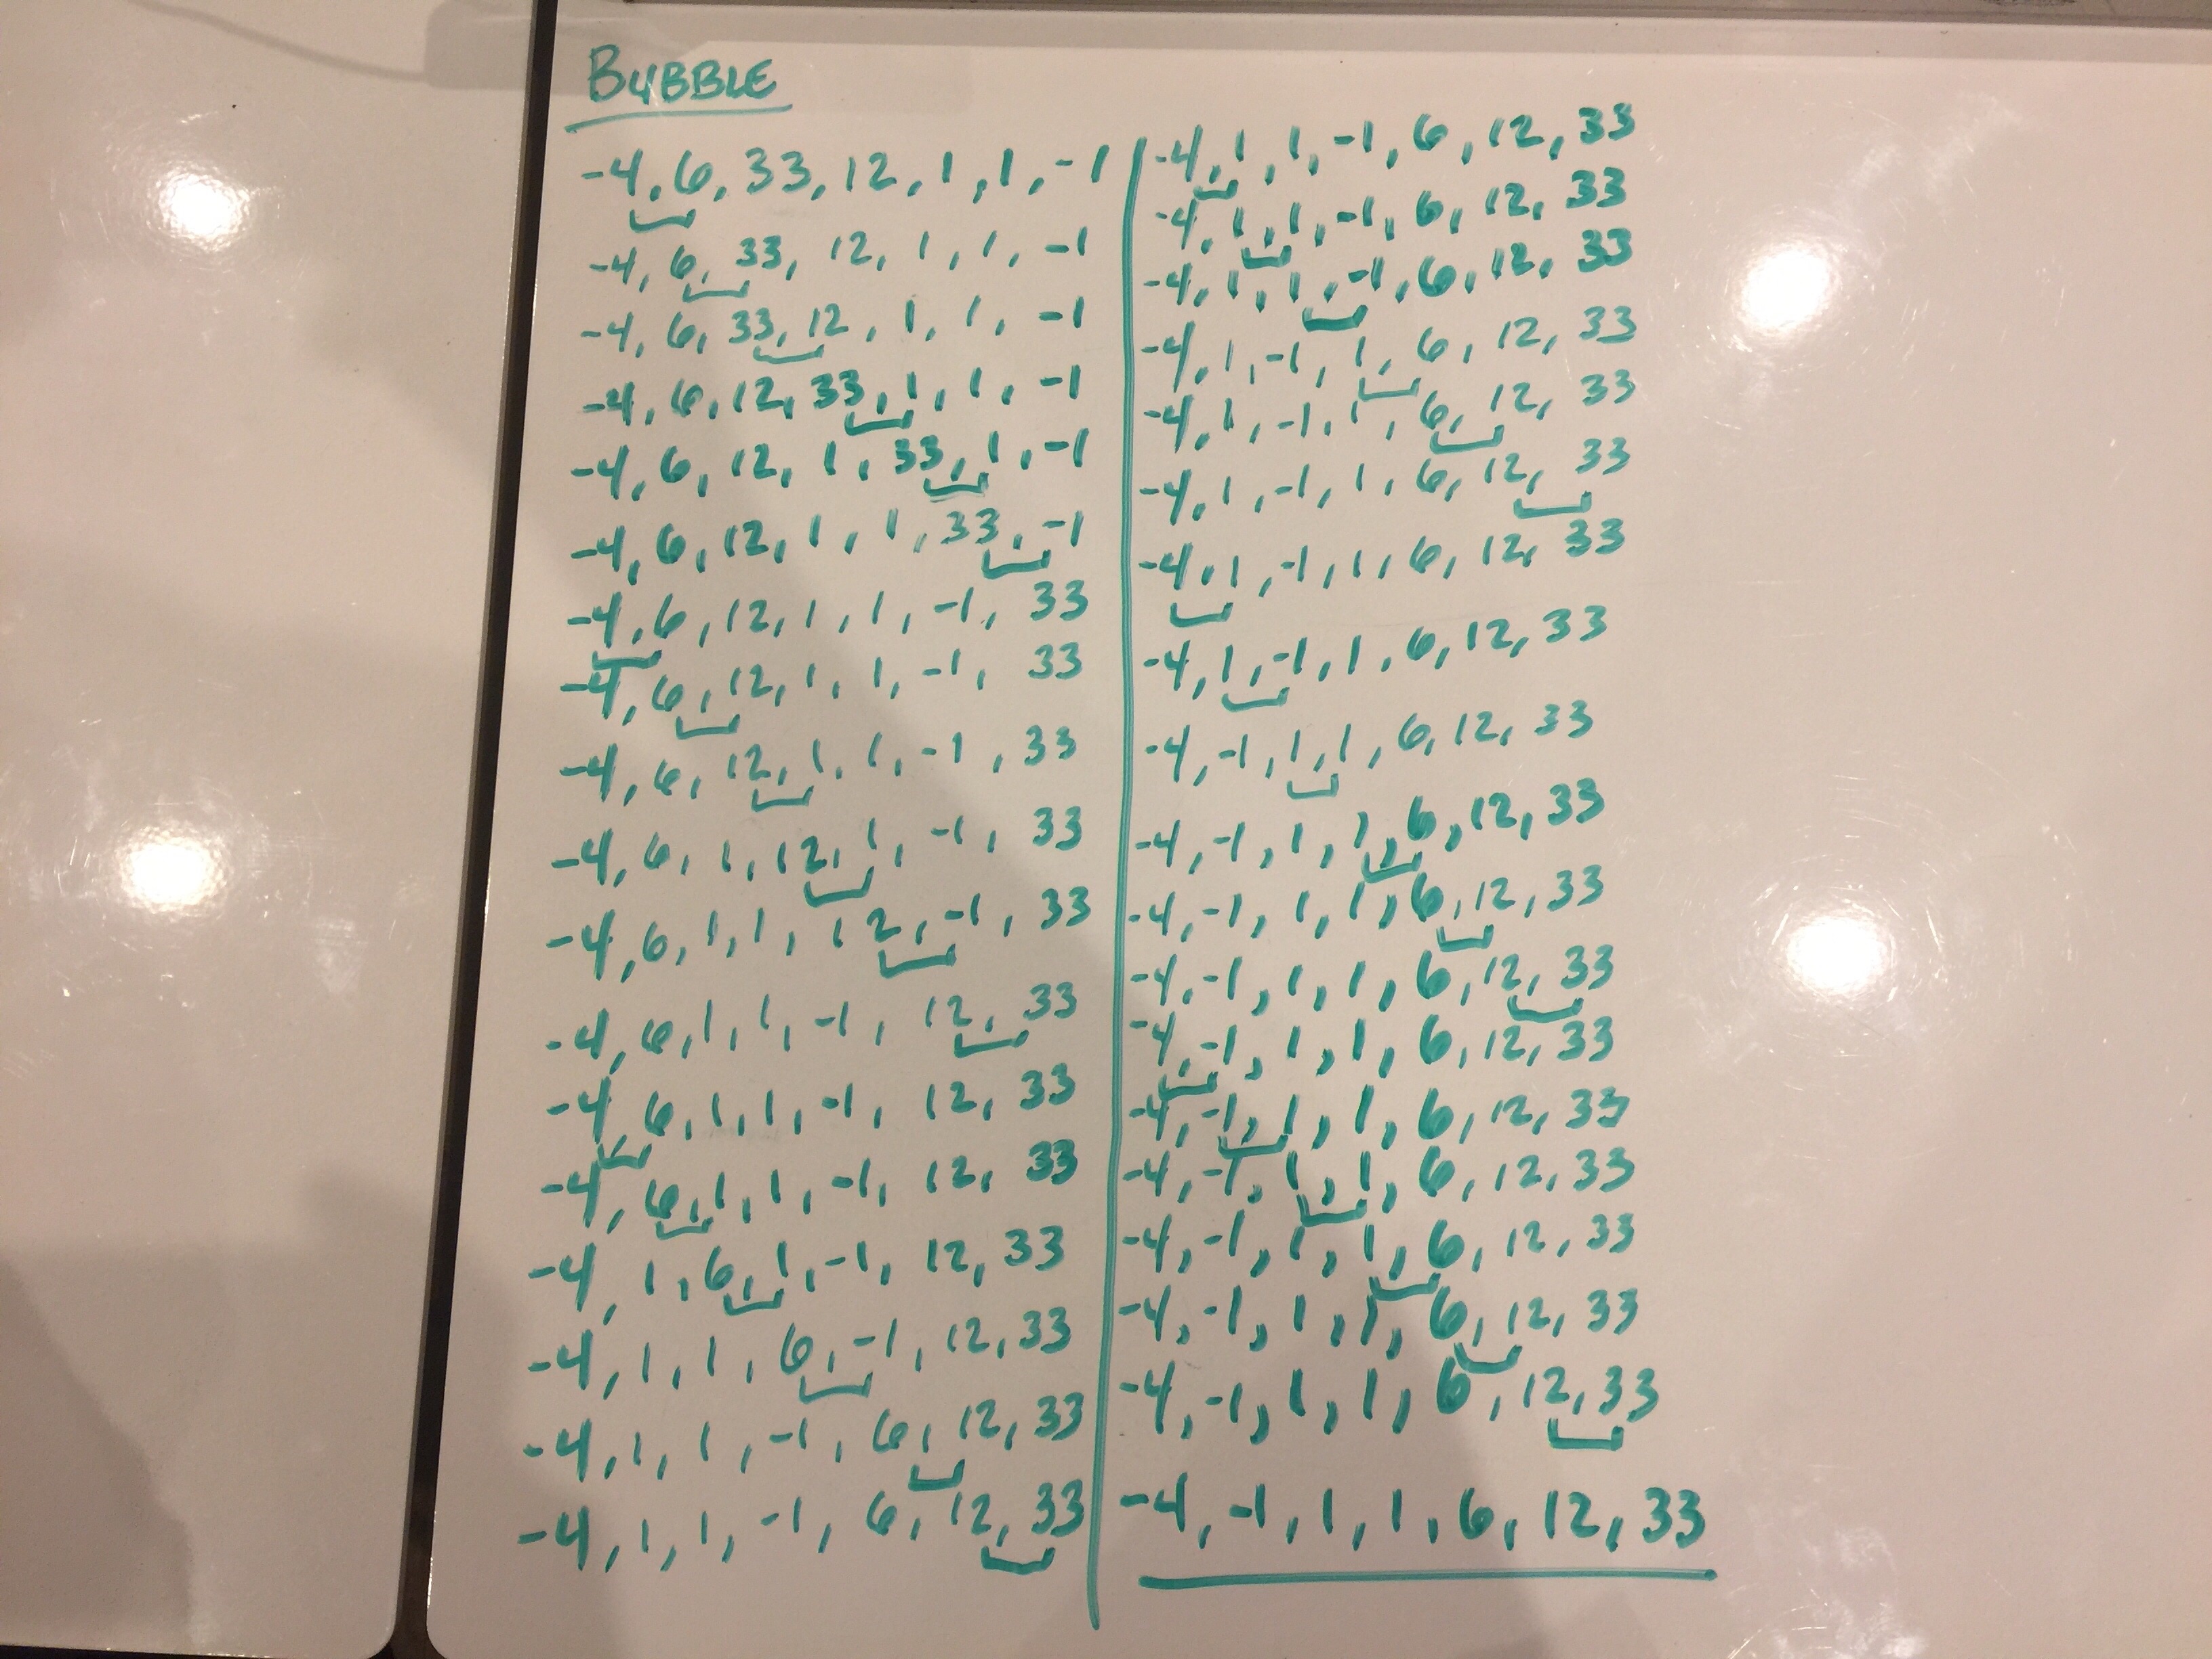 BUBBLE
-4, 6, 33, 12, 1, 1, -1
-4, 6, 33, 12, 1, 1, -1
-4, 6, 33, 12, 1, 1, -1
-4, 6, 12, 33, 1, 1, -1
-4, 6, 12, 1, 33, 1, -1
-4, 6, 12, 1, 1, 33, -1
-4, 6, 12, 1, 1, -1, 33
-4, 6, 12, 1, 1, -1, 33
-4, 6, 12, 1, 1, -1, 33
-4, 6, 1, 12, 1, -1, 33
-4, 6, 1, 1, 12, -1, 33
-4, 6, 1, 1, -1, 12, 33
-4 6, 1, 1, -1, 12, 33
-4, 6, 1, 1, -1, 12, 33
-4, 1, 6, 1, -1, 12, 33
-4, 1, 1, 6, -1, 12, 33
-4, 1, 1, -1, 6, 12, 33
-4, 1, 1, -1, 6, 12, 33
-4, 1, 1, -1, 6, 12, 33
-4, 1, 1, -1, 6, 12, 33
-4, 1, 1, -1, 6, 12, 33
-4, 1, -1, 1, 6, 12, 33
-4, 1, -1, 1, 6, 12, 33
-4, 1, -1, 1, 6, 12, 33
-4, 1, -1, 1, 6, 12, 33
-4, 1, -1, 1, 6, 12, 33
-4, -1, 1, 1, 6, 12, 33
-4, -1, 1, 1, 6, 12, 33
-4, -1, 1, 1, 6, 12, 33
-4, -1, 1, 1, 6, 12, 33
-4, -1, 1, 1, 6, 12, 33
-4, -1, 1, 1, 6, 12, 33
-4, -1, 1, 1, 6, 12, 33
-4, -1, 1, 1, 6, 12, 33
-4, -1, 1, 1, 6, 12, 33
-4, -1, 1, 1, 6, 12, 33
-4, -1, 1, 1, 6, 12, 33